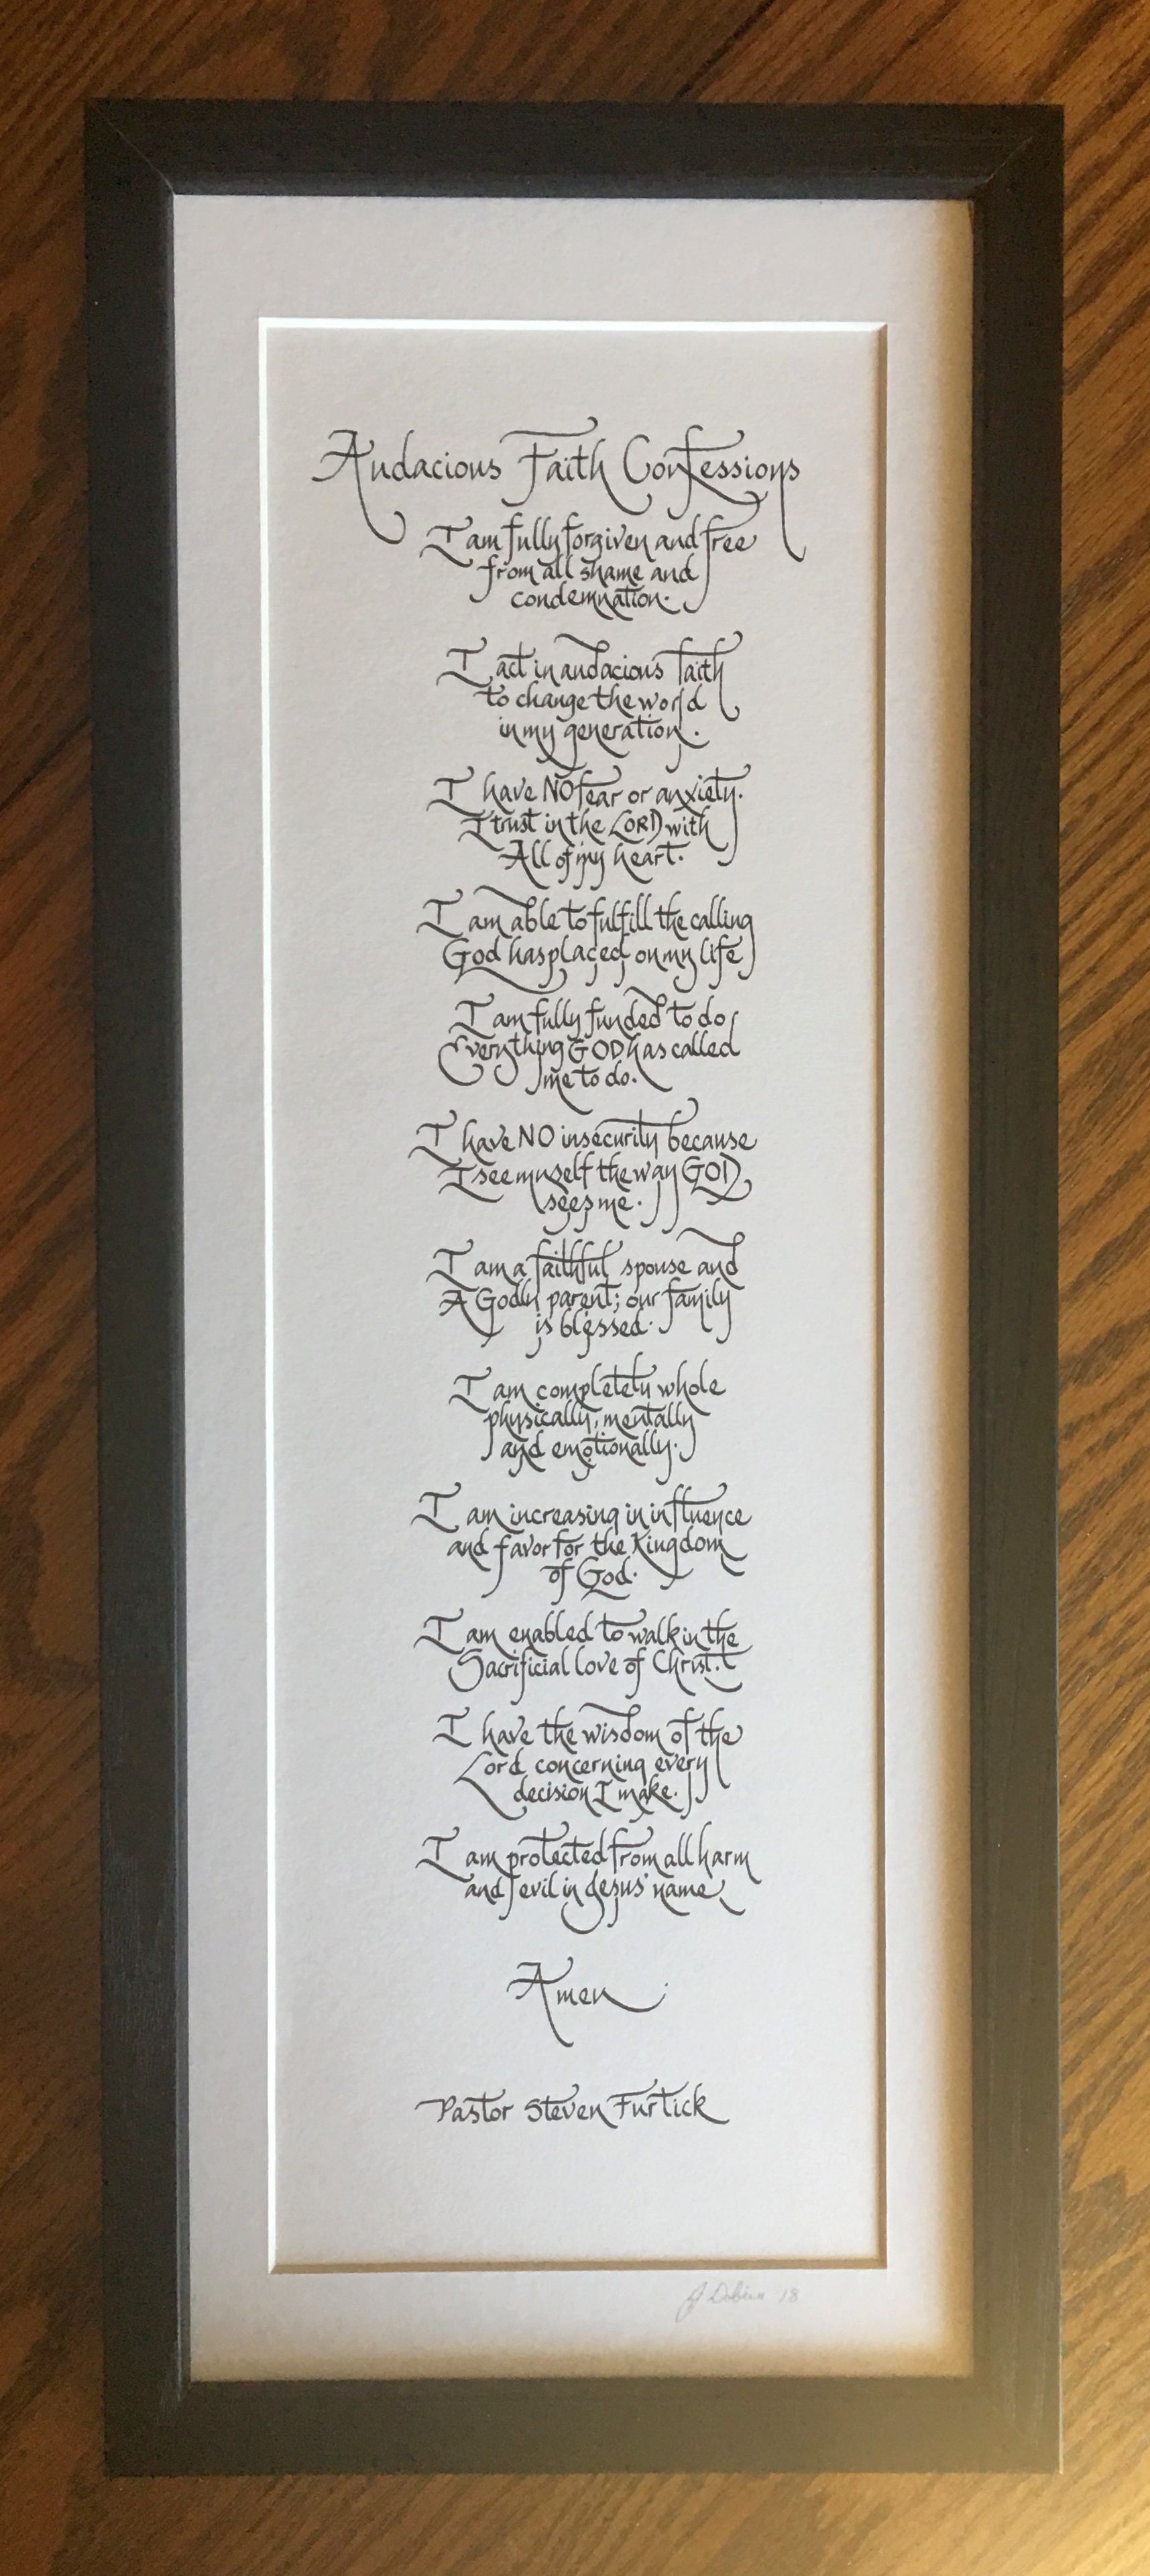 Audacious Faith Confessions
I am fully forgiven and free
from all shame and
condemnation.
I act in audacious faith
to change the world
in my generation.
I have NO fear or anxiety.
I trust in the LORD with
All of my heart.
I am able to fulfill the calling
God has placed on my life
I am fully funded to do
Everything GOD has called
me to do.
I have NO insecurity because
I see myself the way GOD
sees me.
I am a faithful spouse and
A Godly parent; our family
is blessed.
I am completely whole
physically, mentally
and emotionally.
I am increasing in influence
and favor for the Kingdom
of God.
I am enabled to walk in the
Sacrificial love of Christ.
I have the wisdom of the
Lord concerning every
decision I make.
I am protected from all harm
and evil in Jesus' name
Amen
Pastor Steven Furtick
'18